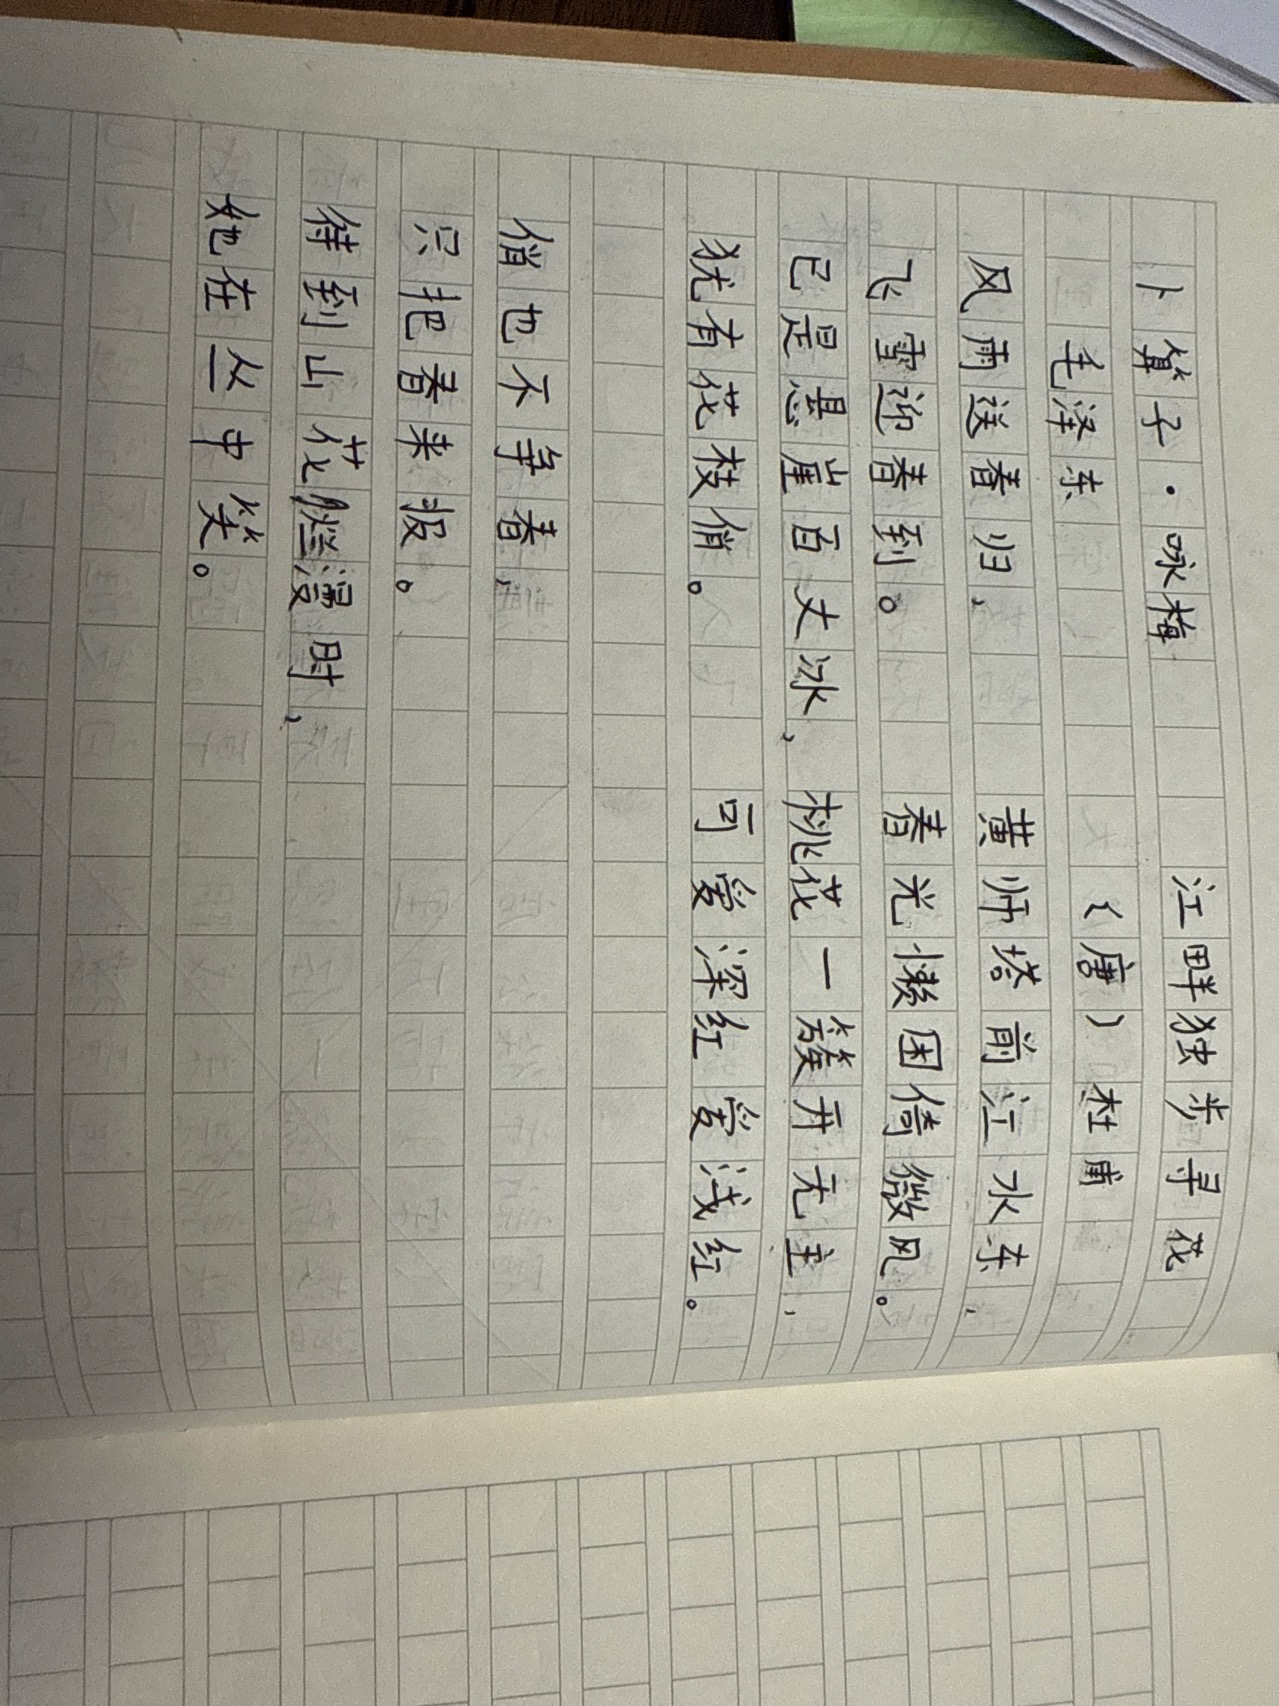 卜算子·咏梅
毛泽东
风雨送春归，
飞雪迎春到。
已是悬崖百丈冰，
犹有花枝俏。
俏也不争春，
只把春来报。
待到山花烂漫时，
她在丛中笑。
江畔独步寻花
（唐）杜甫
黄师塔前江水东，
春光懒困倚微风。
桃花一簇开无主，
可爱深红爱浅红。